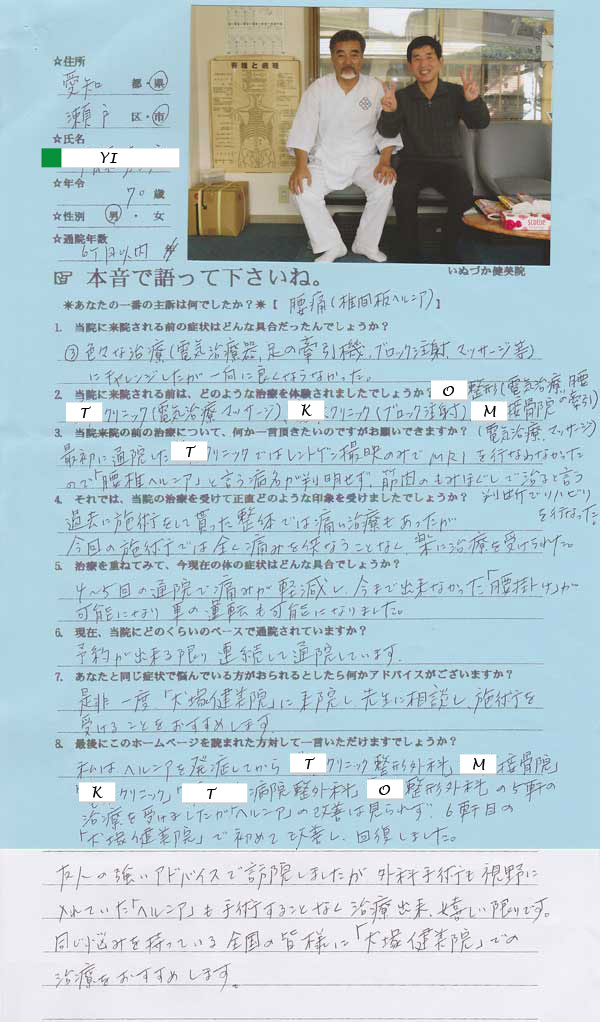 ☆住所
愛知 都・県
瀬戸 区・市
☆氏名
YI
☆年令
70 歳
☆性別 男・女
☆通院年数
6ヶ月以内
脊椎と病理
scottie
いぬづか健美院
☞ 本音で語って下さいね。
＊あなたの一番の主訴は何でしたか？＊【 腰痛(椎間板ヘルニア)】
1. 当院に来院される前の症状はどんな具合だったんでしょうか？
③色々な治療(電気治療器、足の牽引機、ブロック注射、マッサージ等)
にチャレンジしたが一向に良くならなかった。
2. 当院に来院される前は、どのような治療を体験されましたでしょうか？ O整形(電気治療、腰の牽引)
Tクリニック(電気治療マッサージ)、Kクリニック(ブロック注射)、M接骨院(電気治療、マッサージ)
3. 当院来院の前の治療について、何か一言頂きたいのですがお願いできますか？
最初に通院したTクリニックではレントゲン撮映のみでMRIを行なわなかった
ので「腰椎ヘルニア」と言う病名が判明せず、筋肉のもみほぐしで治ると言う
判断でリハビリを行なった。
4. それでは、当院の治療を受けて正直どのような印象を受けましたでしょうか？
過去に施術をして貰った整体では痛い治療もあったが
今回の施術では全く痛みを伴なうことなく、楽に治療を受けられた。
5. 治療を重ねてみて、今現在の体の症状はどんな具合でしょうか？
4〜5回の通院で痛みが軽減し、今まで出来なかった「腰掛け」が
可能になり車の運転も可能になりました。
6. 現在、当院にどのくらいのペースで通院されていますか？
予約が出来る限り連続して通院しています。
7. あなたと同じ症状で悩んでいる方がおられるとしたら何かアドバイスがございますか？
是非一度、「犬塚健美院」に来院し、先生に相談し、施術を
受けることをおすすめします。
8. 最後にこのホームページを読まれた方対して一言いただけますでしょうか？
私はヘルニアを発症してから「Tクリニック整形外科」「M接骨院」
「Kクリニック」「T病院整外科」「O整形外科」の5軒の
治療を受けましたが「ヘルニア」の改善は見られず、6軒目の
「犬塚健美院」で初めて改善し、回復しました。
友人の強いアドバイスで訪院しましたが外科手術も視野に
入れていた「ヘルニア」も手術することなく治療出来、嬉しい限りです。
同じ悩みを持っている全国の皆様に「犬塚健美院」での
治療をおすすめします。